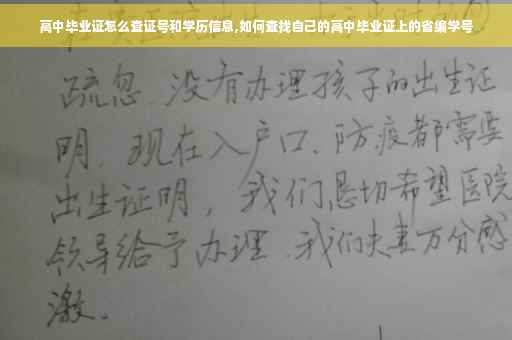 高中毕业证怎么查证号和学历信息,如何查找自己的高中毕业证上的省编学号
疏忽.没有办理孩子的出生证
明.现在入户口、防疫都需要
出生证明，我们恳切希望医院
领导给予办理.我们夫妻万分感
激。